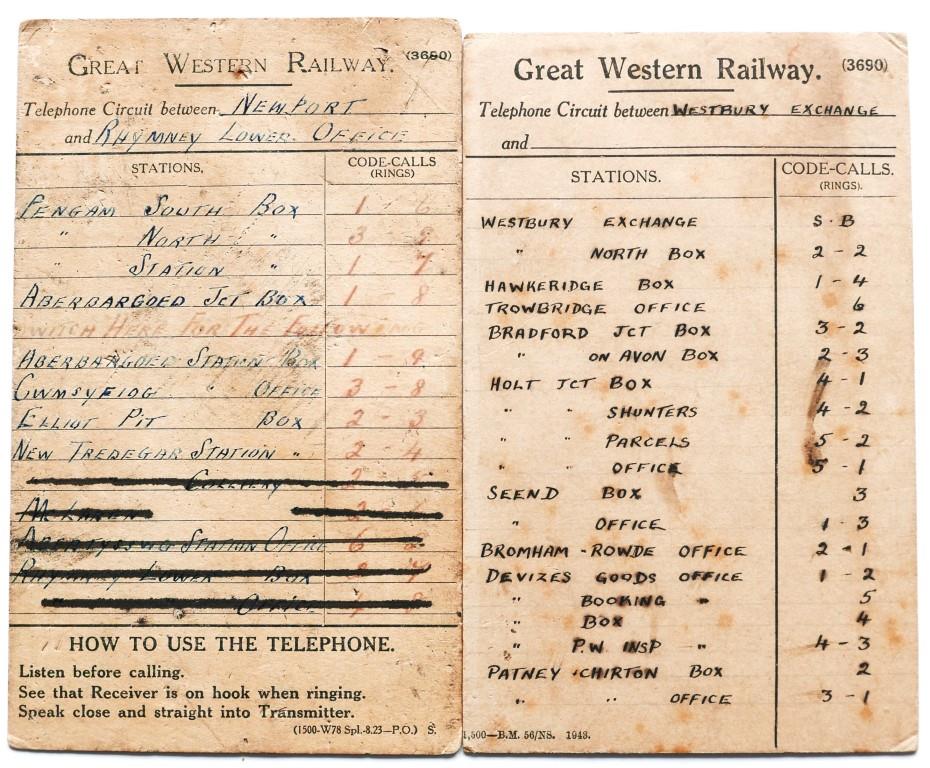 GREAT WESTERN RAILWAY. (3690)
Telephone Circuit between NEWPORT
and RHYMNEY LOWER OFFICE
STATIONS. CODE-CALLS
(RINGS)
PENGAM SOUTH BOX 1 6
" NORTH " 3 - 9
" STATION " 1 7
ABERBARGOED JCT BOX 1 - 8
SWITCH HERE FOR THE FOLLOWING
ABERBARGOED STATION BOX 1 9
CWMSYFIOG " OFFICE 3 - 8
ELLIOT PIT BOX 2 - 3
NEW TREDEGAR STATION " 2 - 4
COLLIERY 2
MCLAREN 2
ABERTYSSWG STATION OFFICE 6
RHYMNEY LOWER BOX 7
OFFICE
HOW TO USE THE TELEPHONE.
Listen before calling.
See that Receiver is on hook when ringing.
Speak close and straight into Transmitter.
(1500-W78 Spl.-8.23-P.O.) S.
Great Western Railway. (3690)
Telephone Circuit between WESTBURY EXCHANGE
and
STATIONS. CODE-CALLS.
(RINGS).
WESTBURY EXCHANGE S · B
" NORTH BOX 2 - 2
HAWKERIDGE BOX 1 - 4
TROWBRIDGE OFFICE 6
BRADFORD JCT BOX 3 - 2
" ON AVON BOX 2 - 3
HOLT JCT BOX 4 - 1
" " SHUNTERS 4 - 2
" " PARCELS 5 - 2
" " OFFICE 5 - 1
SEEND BOX 3
" OFFICE 1 - 3
BROMHAM - ROWDE OFFICE 2 - 1
DEVIZES GOODS OFFICE 1 - 2
" BOOKING " 5
" BOX 4
" P.W INSP " 4 - 3
PATNEY · CHIRTON BOX 2
" " OFFICE 3 - 1
1,500—B.M. 56/NS. 1943.